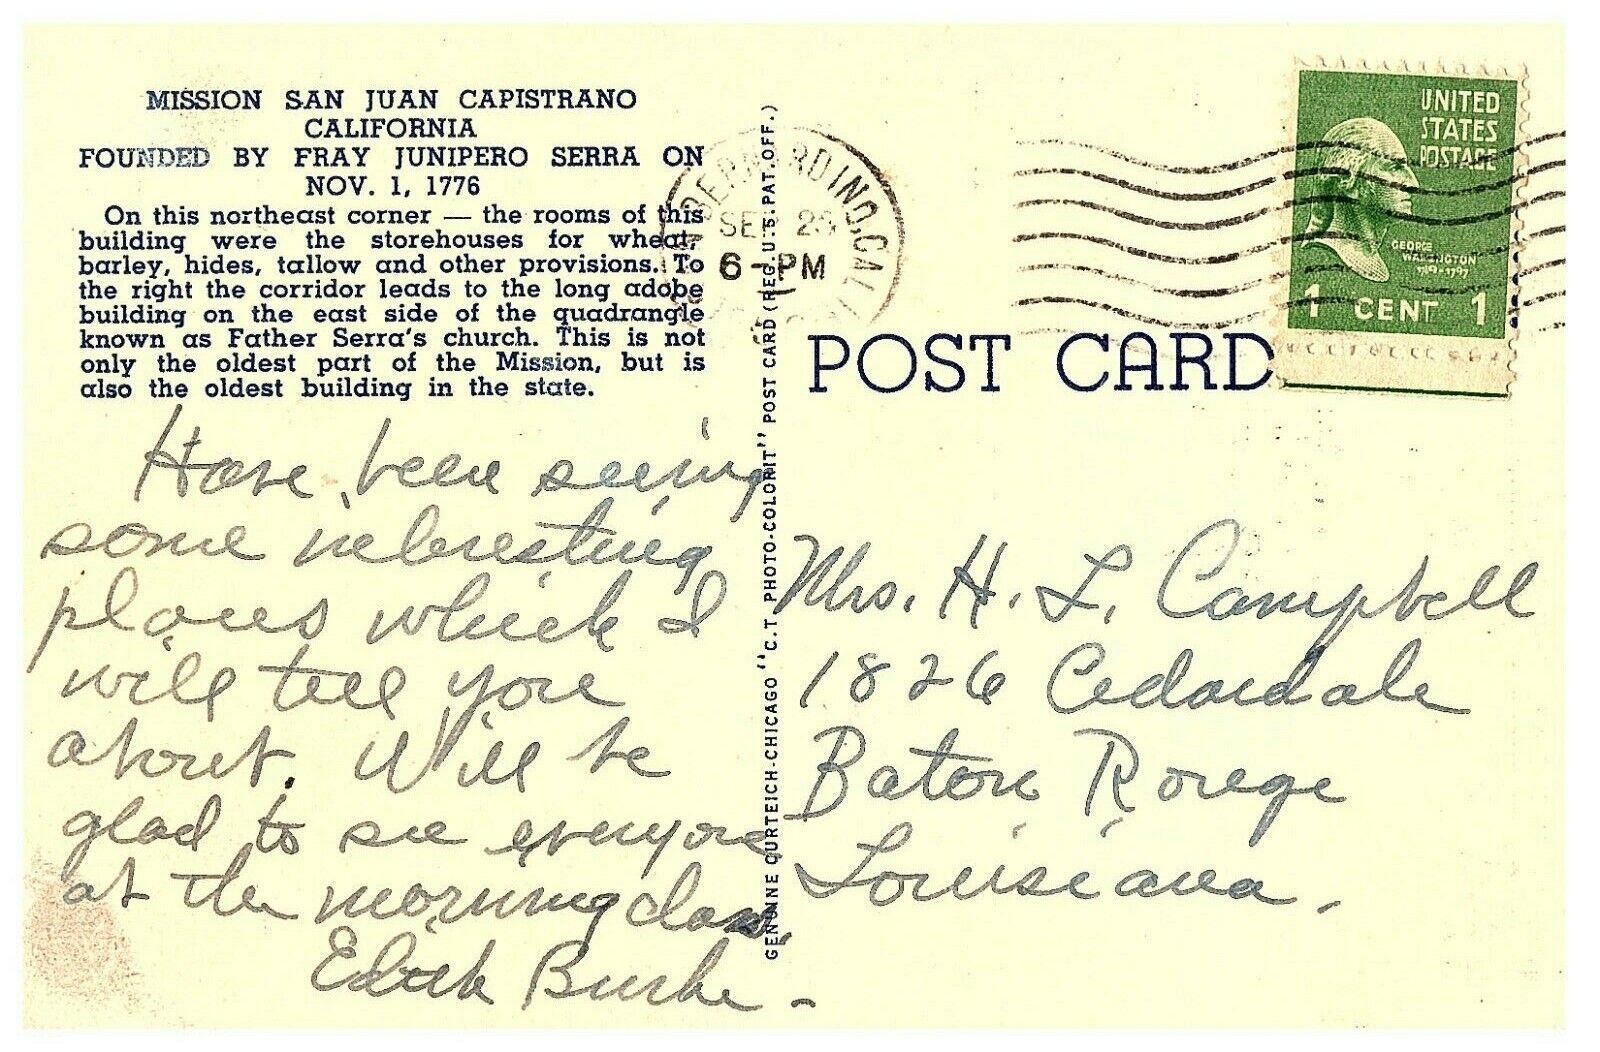 MISSION SAN JUAN CAPISTRANO
CALIFORNIA
FOUNDED BY FRAY JUNIPERO SERRA ON
NOV. 1, 1776
On this northeast corner — the rooms of this
building were the storehouses for wheat,
barley, hides, tallow and other provisions. To
the right the corridor leads to the long adobe
building on the east side of the quadrangle
known as Father Serra's church. This is not
only the oldest part of the Mission, but is
also the oldest building in the state.
Have been seeing
some interesting
places which I
will tell you
about. Will be
glad to see everyone
at the morning class.
Edith Burke -
GENUINE CURTEICH-CHICAGO "C.T. PHOTO-COLORIT" POST CARD (REG. U.S. PAT. OFF.)
BERNARDINO, CAL
SEP 23
6-PM
UNITED
STATES
POSTAGE
GEORGE
WASHINGTON
1 CENT 1
POST CARD
Mrs. H. L. Campbell
1826 Cedardale
Baton Rouge
Louisiana.